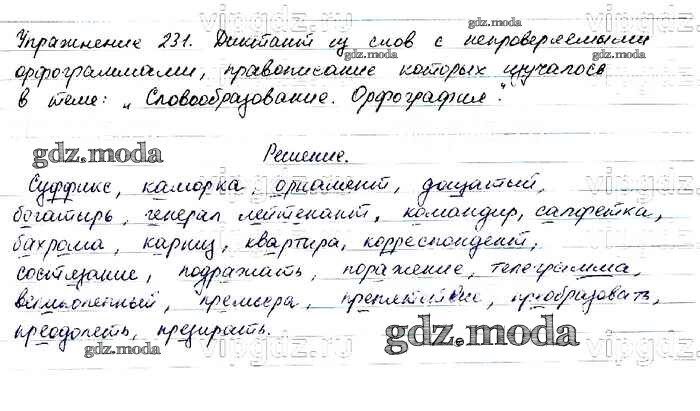 Упражнение 231. Диктант из слов с непроверяемыми
орфограммами, правописание которых изучалось
в теме: "Словообразование. Орфография".
gdz.moda
Решение.
Суффикс, каморка, орнамент, дощатый,
богатырь, генерал лейтенант, командир, салфетка,
бахрома, карниз, квартира, корреспондент,
состязание, подражать, поражение, телеграмма,
премьера, препятствие, преобразовать,
преодолеть, презирать.
gdz.moda
gdz.moda
gdz.moda
gdz.moda
vipgdz.ru